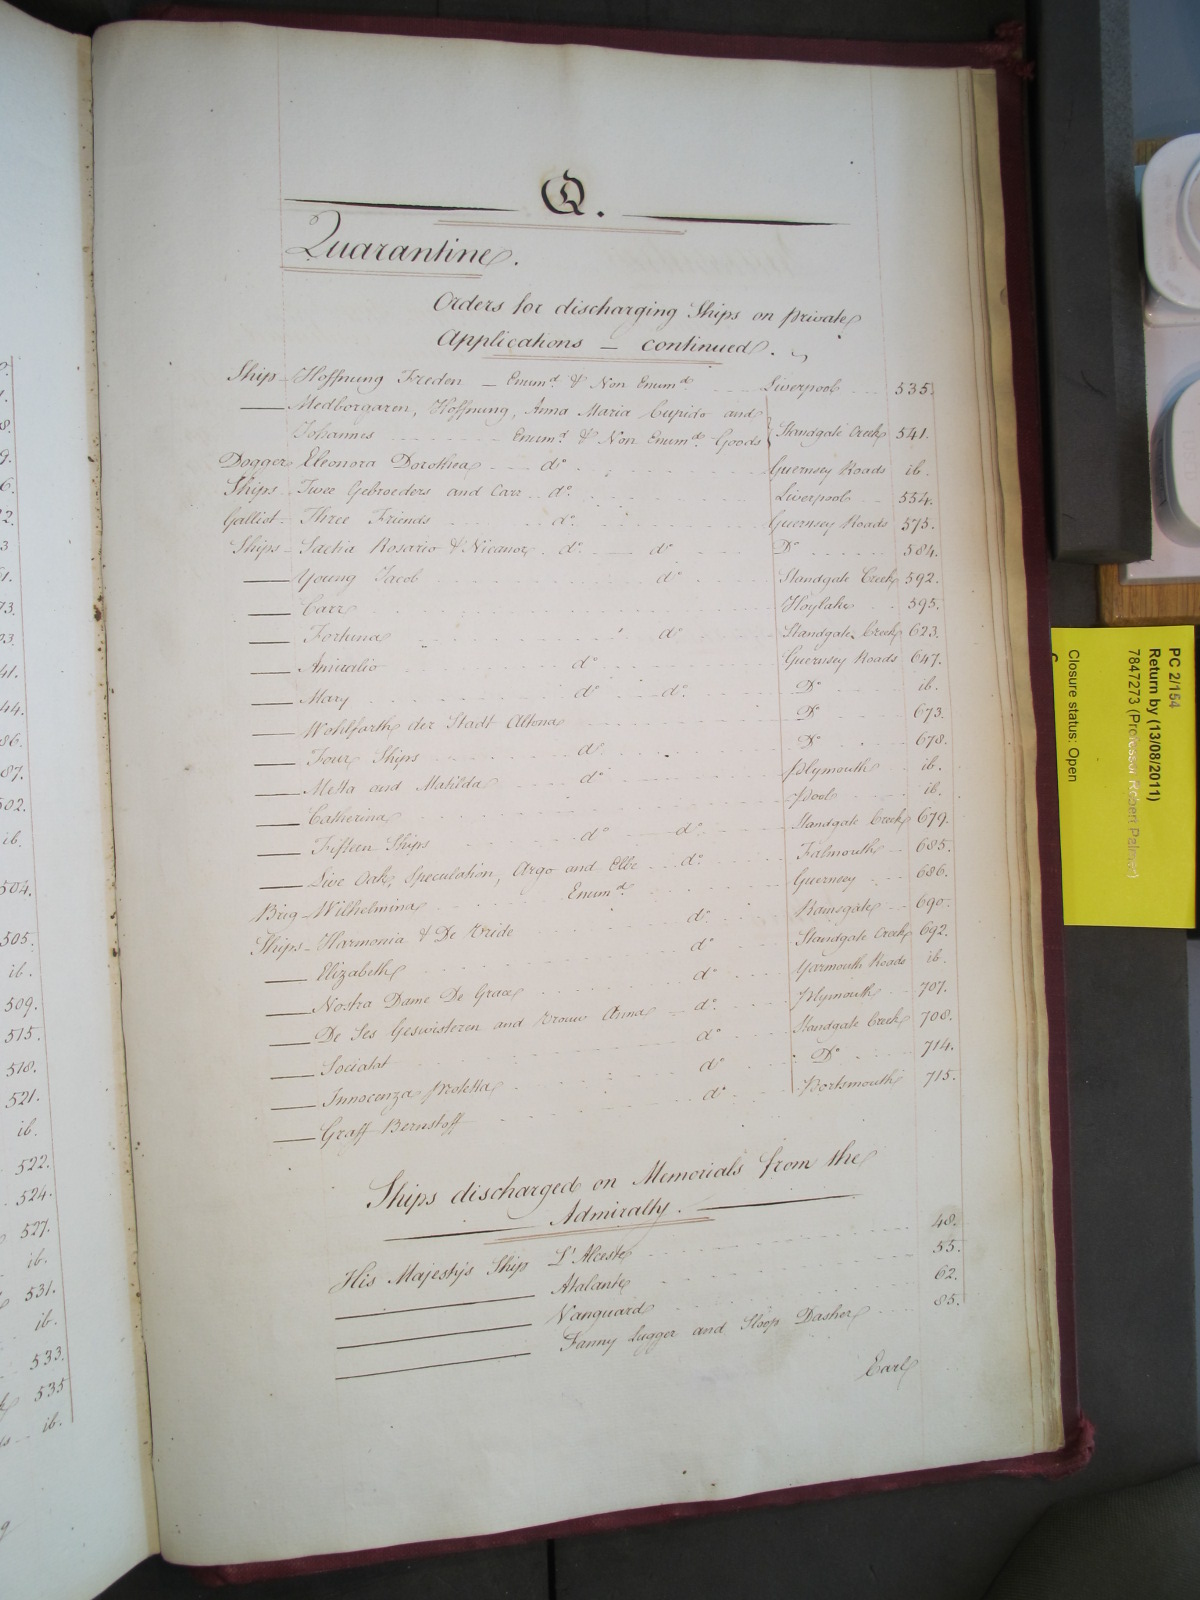 Q.
Quarantine.
Orders for discharging Ships on private
Applications — continued.
Ship — Hoffnung Freden — Enumd. & Non Enumd. Liverpool 535.
—— Medborgaren, Hoffnung, Anna Maria Cupido and
Johannes Enumd. & Non Enumd. Goods Standgate Creek 541.
Dogger Eleonora Dorothea do. Guernsey Roads ib.
Ships — Twee Gebroeders and Carr do. Liverpool 554.
Galliot — Three Friends do. Guernsey Roads 575.
Ships — Sacha Rosario & Nicanor do. do. Do. 584.
—— Young Jacob do. Standgate Creek 592.
—— Carr Hoylake 595.
—— Fortuna do. Standgate Creek 623.
—— Amicalio do. Guernsey Roads 647.
—— Mary do. do. Do. ib.
—— Wohlfarth der Stadt Altona Do. 673.
—— Four Ships do. Do. 678.
—— Metta and Matilda do. Plymouth ib.
—— Catherina Pool ib.
—— Fifteen Ships do. do. Standgate Creek 679.
—— Live Oak, Speculation, Argo and Elbe do. Falmouth 685.
Brig — Wilhelmina Enumd. Guernsey 686.
Ships — Harmonia & De Vride do. Ramsgate 690.
—— Elizabeth do. Standgate Creek 692.
—— Nostra Dame De Grace do. Yarmouth Roads ib.
—— De Ses Geswisteren and Vrouw Anna do. Plymouth 707.
—— Socialat do. Standgate Creek 708.
—— Innocenza Protetta do. Do. 714.
—— Graff Bernstoff do. Portsmouth 715.
Ships discharged on Memorials from the
Admiralty.
His Majesty's Ship L'Alceste 48.
—— Atalante 55.
—— Vanguard 62.
—— Fanny Lugger and Sloop Dasher 85.
Earl
504.
505.
ib.
509.
515.
518.
521.
ib.
522.
524.
527.
ib.
531.
ib.
533.
535
ib.
PC 2/154
Return by (13/08/2011)
7847273 (Professor Robert Palmer)
Closure status: Open